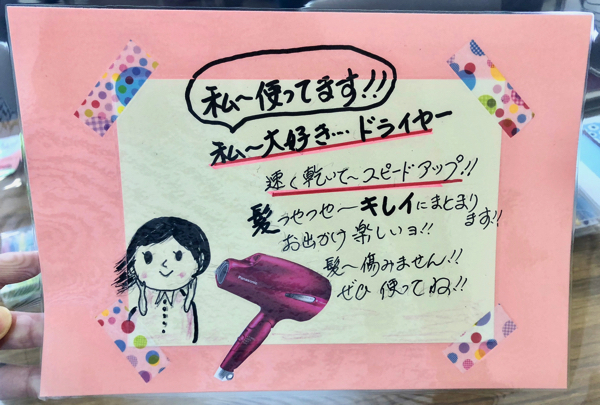 私〜使ってます!!
私〜大好き… ドライヤー
速く乾いて〜スピードアップ!!
髪つやつや〜キレイにまとまり
ます!!
お出かけ楽しいョ!!
髪〜傷みません!!
ぜひ使ってね!!